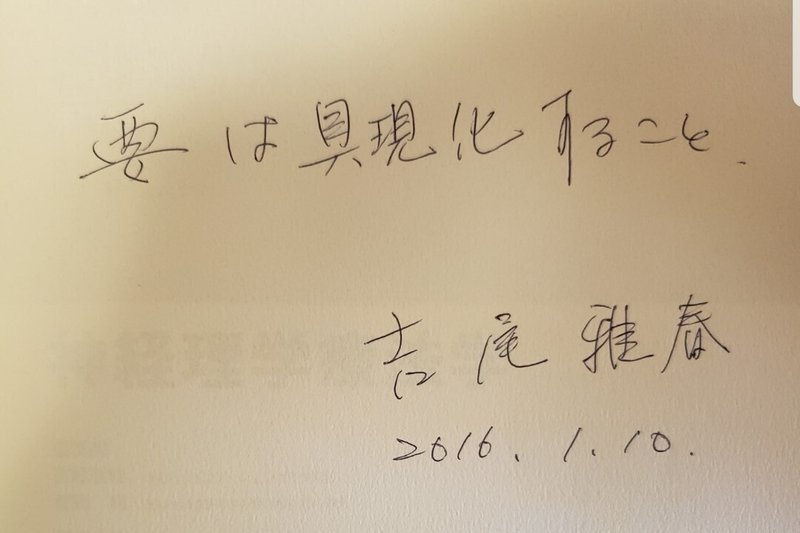 要は具現化すること.
吉尾雅春
2016.1.10.